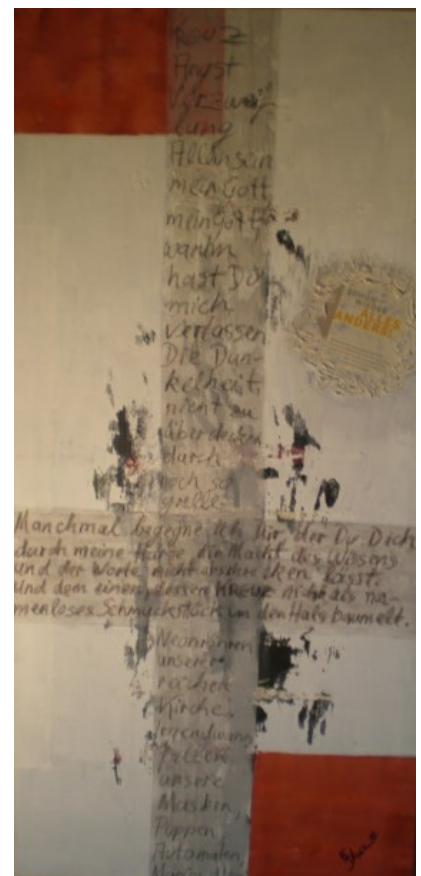 Kreuz
Angst
Verzweif
lung
Alleinsein
mein Gott
mein Gott,
warum
hast Du
mich
verlassen
Die Dun-
kelheit,
nicht zu
überdecken
durch
noch so
grelle
ALLES
ANDERE
Manchmal begegne ich Dir, der Du Dich
durch meine die Macht des Wissens
und der Worte nicht abschrecken lässt.
Und dem einen, dessen KREUZ nicht als na-
menloses Schmuckstück um den Hals baumelt.
Neonröhren
unserer
Kirche.
Irgendwann
unsere
Masken,
Puppen,
Automaten,